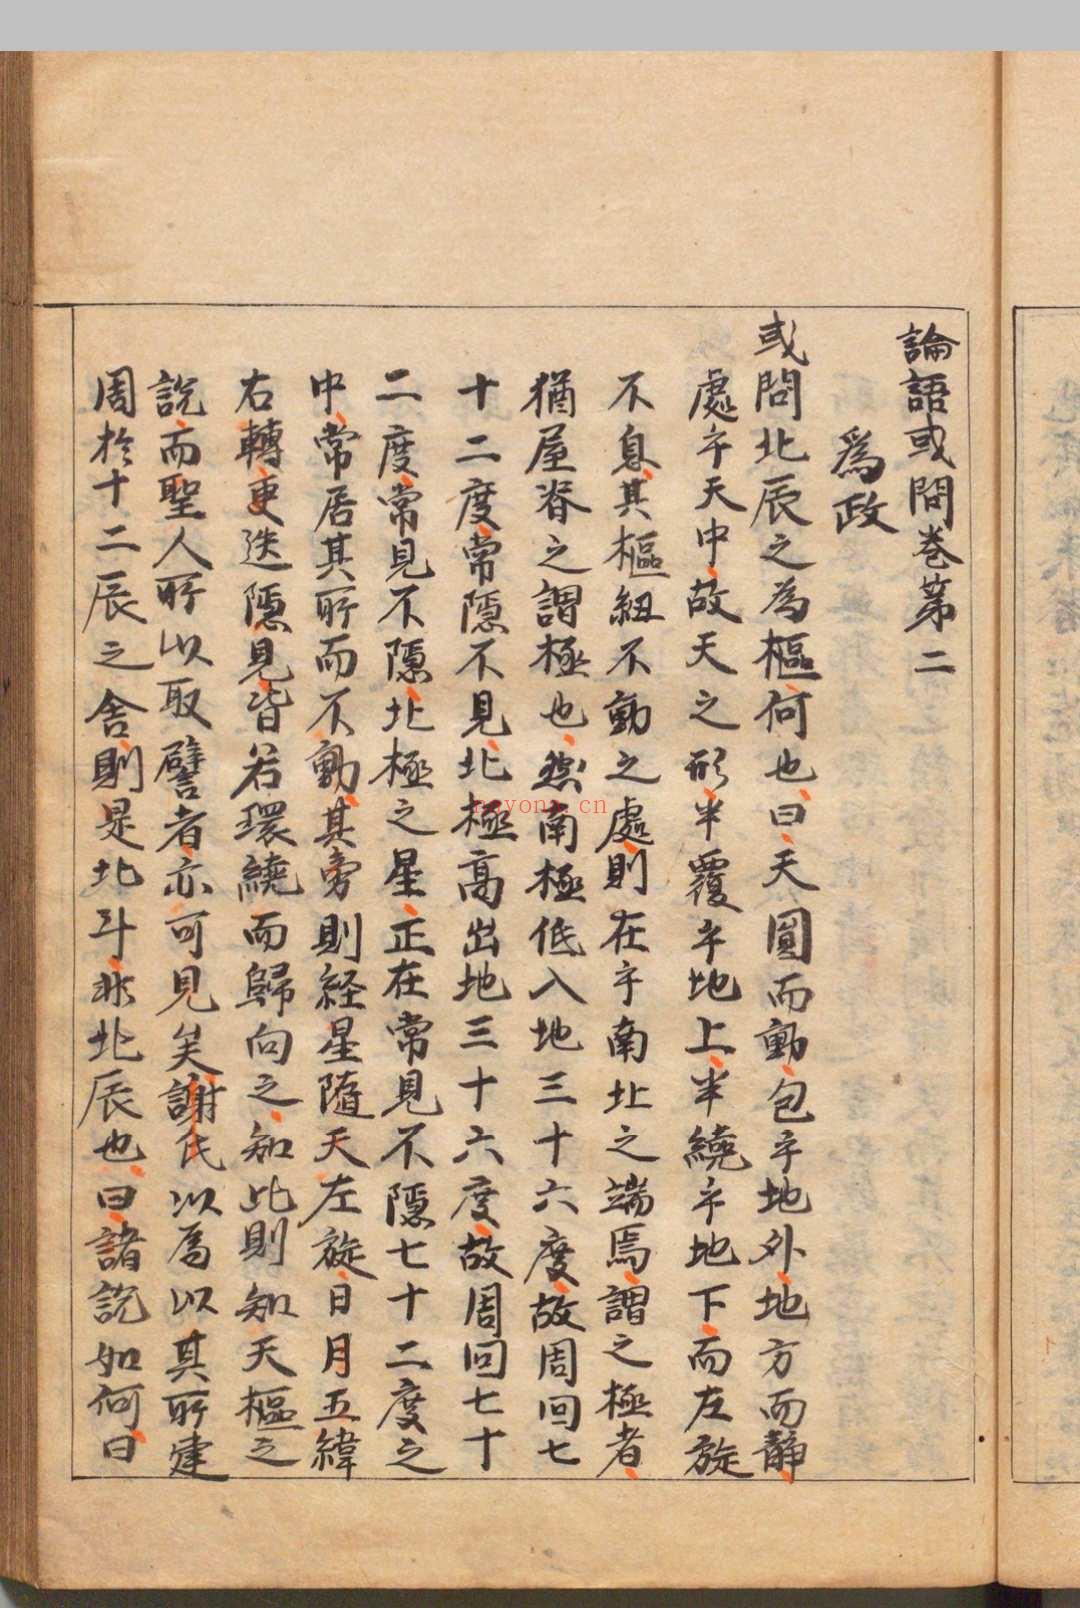 論語或問卷第二
為政
或問北辰之為樞何也曰天圓而動包乎地外地方而靜
處乎天中故天之形半覆乎地上半繞乎地下而左旋
不息其樞紐不動之處則在乎南北之端焉謂之極者
猶屋脊之謂極也然南極低入地三十六度故周回七
十二度常隱不見北極高出地三十六度故周回七十
二度常見不隱北極之星正在常見不隱七十二度之
中常居其所而不動其旁則経星隨天左旋日月五緯
右轉更迭隱見皆若環繞而歸向之知此則知天樞之
說而聖人所以取譬者亦可見矣謝氏以為以其所建
周於十二辰之舍則是北斗非北辰也曰諸說如何曰
nayona.cn